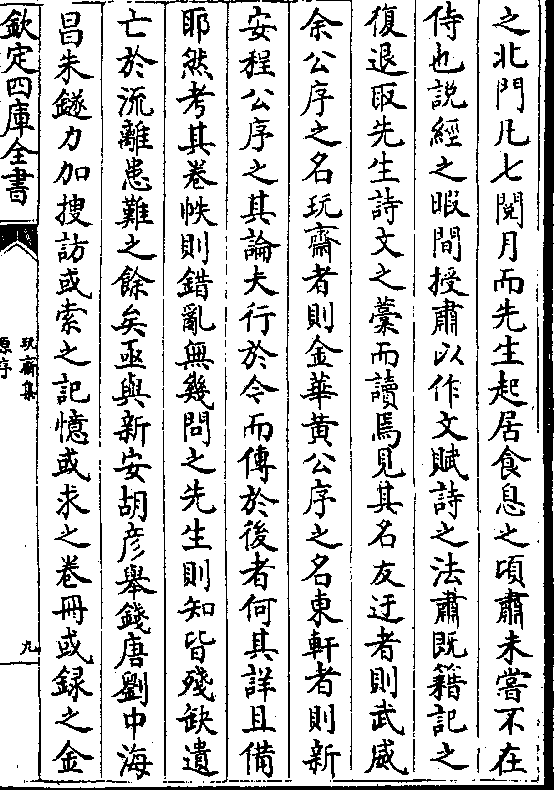 之北門凡七閱月而先生起居食息之頃肅未嘗不在
侍也説經之暇間授肅以作文賦詩之法肅既籍記之
復退取先生詩文之藁而讀焉見其名友迂者則武威
余公序之名玩齋者則金華黄公序之名東軒者則新
安程公序之其論大行於今而傳於後者何其詳且備
耶然考其卷帙則錯亂無幾問之先生則知皆殘缺遺
亡於流離患難之餘矣亟與新安胡彦舉錢唐劉中海
昌朱鐩力加搜訪或索之記憶或求之卷冊或録之金
欽定四庫全書
玩齋集
原序
九